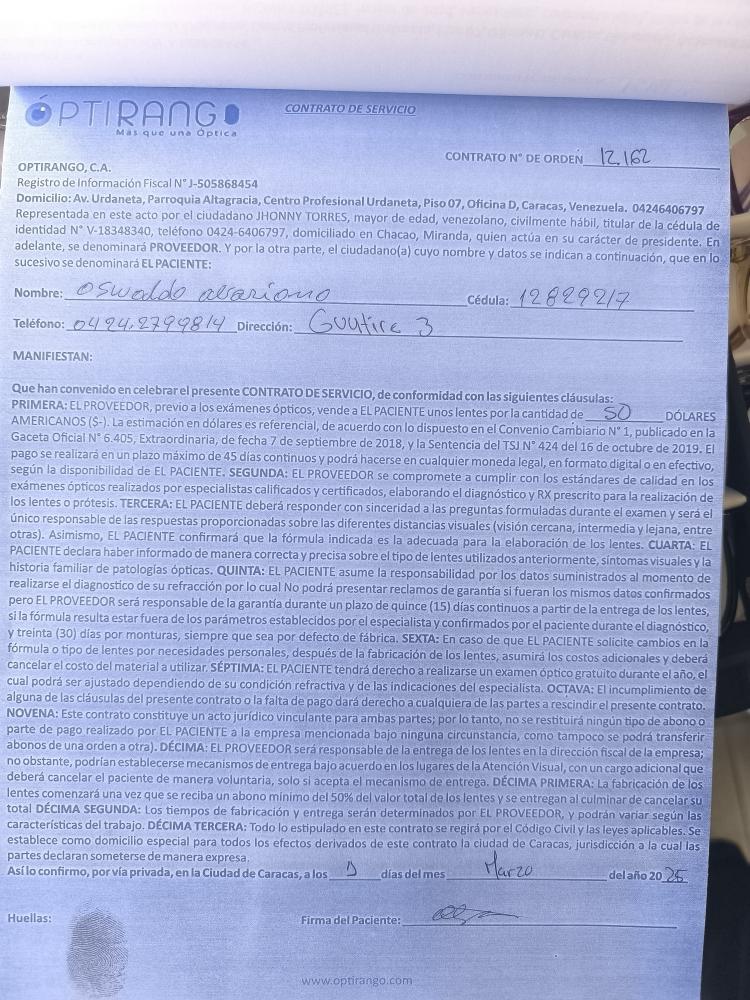 ÓPTIRANGO
Más que una Óptica
CONTRATO DE SERVICIO
CONTRATO N° DE ORDEN 12.162
OPTIRANGO, C.A.
Registro de Información Fiscal N° J-505868454
Domicilio: Av. Urdaneta, Parroquia Altagracia, Centro Profesional Urdaneta, Piso 07, Oficina D, Caracas, Venezuela. 04246406797
Representada en este acto por el ciudadano JHONNY TORRES, mayor de edad, venezolano, civilmente hábil, titular de la cédula de
identidad N° V-18348340, teléfono 0424-6406797, domiciliado en Chacao, Miranda, quien actúa en su carácter de presidente. En
adelante, se denominará PROVEEDOR. Y por la otra parte, el ciudadano(a) cuyo nombre y datos se indican a continuación, que en lo
sucesivo se denominará EL PACIENTE:
Nombre: Oswaldo Cédula: 12829217
Teléfono: 0424.2799814 Dirección: Guatire 3
MANIFIESTAN:
Que han convenido en celebrar el presente CONTRATO DE SERVICIO, de conformidad con las siguientes cláusulas:
PRIMERA: EL PROVEEDOR, previo a los exámenes ópticos, vende a EL PACIENTE unos lentes por la cantidad de 50 DÓLARES
AMERICANOS ($-). La estimación en dólares es referencial, de acuerdo con lo dispuesto en el Convenio Cambiario N° 1, publicado en la
Gaceta Oficial N° 6.405, Extraordinaria, de fecha 7 de septiembre de 2018, y la Sentencia del TSJ N° 424 del 16 de octubre de 2019. El
pago se realizará en un plazo máximo de 45 días continuos y podrá hacerse en cualquier moneda legal, en formato digital o en efectivo,
según la disponibilidad de EL PACIENTE. SEGUNDA: EL PROVEEDOR se compromete a cumplir con los estándares de calidad en los
exámenes ópticos realizados por especialistas calificados y certificados, elaborando el diagnóstico y RX prescrito para la realización de
los lentes o prótesis. TERCERA: EL PACIENTE deberá responder con sinceridad a las preguntas formuladas durante el examen y será el
único responsable de las respuestas proporcionadas sobre las diferentes distancias visuales (visión cercana, intermedia y lejana, entre
otras). Asimismo, EL PACIENTE confirmará que la fórmula indicada es la adecuada para la elaboración de los lentes. CUARTA: EL
PACIENTE declara haber informado de manera correcta y precisa sobre el tipo de lentes utilizados anteriormente, síntomas visuales y la
historia familiar de patologías ópticas. QUINTA: EL PACIENTE asume la responsabilidad por los datos suministrados al momento de
realizarse el diagnostico de su refracción por lo cual No podrá presentar reclamos de garantía si fueran los mismos datos confirmados
pero EL PROVEEDOR será responsable de la garantía durante un plazo de quince (15) días continuos a partir de la entrega de los lentes,
si la fórmula resulta estar fuera de los parámetros establecidos por el especialista y confirmados por el paciente durante el diagnóstico,
y treinta (30) días por monturas, siempre que sea por defecto de fábrica. SEXTA: En caso de que EL PACIENTE solicite cambios en la
fórmula o tipo de lentes por necesidades personales, después de la fabricación de los lentes, asumirá los costos adicionales y deberá
cancelar el costo del material a utilizar. SÉPTIMA: EL PACIENTE tendrá derecho a realizarse un examen óptico gratuito durante el año, el
cual podrá ser ajustado dependiendo de su condición refractiva y de las indicaciones del especialista. OCTAVA: El incumplimiento de
alguna de las cláusulas del presente contrato o la falta de pago dará derecho a cualquiera de las partes a rescindir el presente contrato.
NOVENA: Este contrato constituye un acto jurídico vinculante para ambas partes; por lo tanto, no se restituirá ningún tipo de abono o
parte de pago realizado por EL PACIENTE a la empresa mencionada bajo ninguna circunstancia, como tampoco se podrá transferir
abonos de una orden a otra). DÉCIMA: EL PROVEEDOR será responsable de la entrega de los lentes en la dirección fiscal de la empresa;
no obstante, podrían establecerse mecanismos de entrega bajo acuerdo en los lugares de la Atención Visual, con un cargo adicional que
deberá cancelar el paciente de manera voluntaria, solo si acepta el mecanismo de entrega. DÉCIMA PRIMERA: La fabricación de los
lentes comenzará una vez que se reciba un abono mínimo del 50% del valor total de los lentes y se entregan al culminar de cancelar su
total DÉCIMA SEGUNDA: Los tiempos de fabricación y entrega serán determinados por EL PROVEEDOR, y podrán variar según las
características del trabajo. DÉCIMA TERCERA: Todo lo estipulado en este contrato se regirá por el Código Civil y las leyes aplicables. Se
establece como domicilio especial para todos los efectos derivados de este contrato la ciudad de Caracas, jurisdicción a la cual las
partes declaran someterse de manera expresa.
Así lo confirmo, por vía privada, en la Ciudad de Caracas, a los días del mes Marzo del año 2025
Huellas: Firma del Paciente:
www.optirango.com